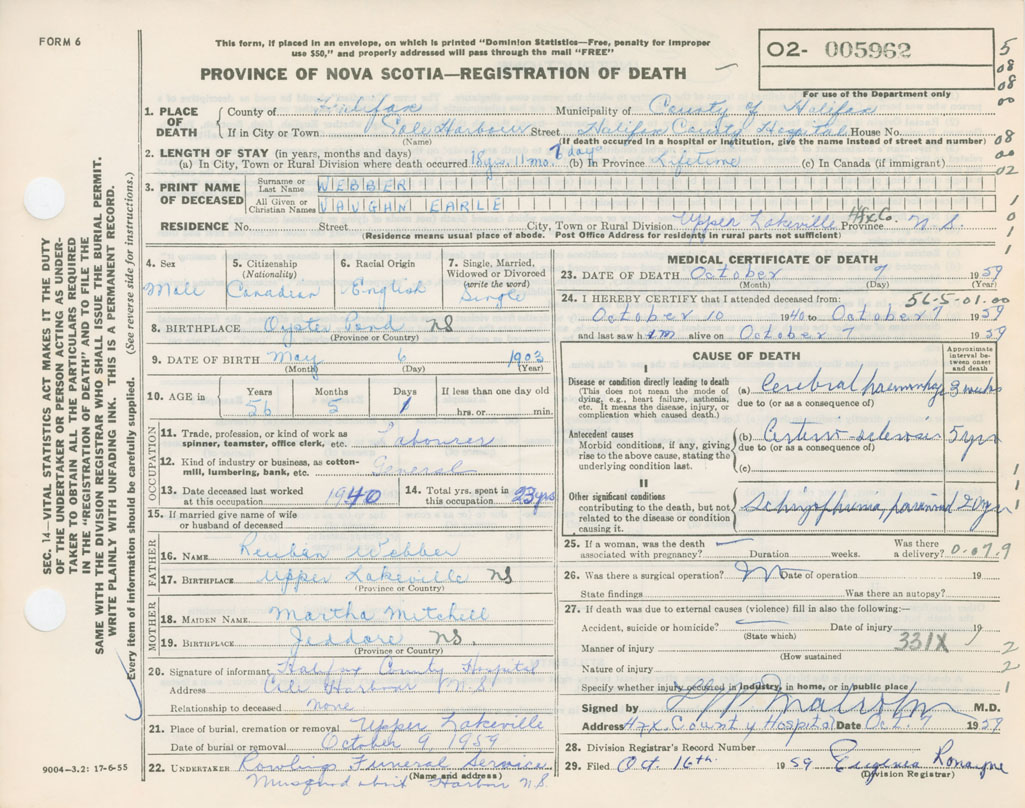 FORM 6
This form, if placed in an envelope, on which is printed "Dominion Statistics—Free, penalty for improper
use $50," and properly addressed will pass through the mail "FREE"
PROVINCE OF NOVA SCOTIA—REGISTRATION OF DEATH
O2- 005962
For use of the Department only
5
08
08
00
08
00
02
1
0
1
1
SEC. 14—VITAL STATISTICS ACT MAKES IT THE DUTY
OF THE UNDERTAKER OR PERSON ACTING AS UNDER-
TAKER TO OBTAIN ALL THE PARTICULARS REQUIRED
IN THE "REGISTRATION OF DEATH" AND TO FILE THE
SAME WITH THE DIVISION REGISTRAR WHO SHALL ISSUE THE BURIAL PERMIT.
WRITE PLAINLY WITH UNFADING INK. THIS IS A PERMANENT RECORD.
Every item of information should be carefully supplied. (See reverse side for instructions.)
1. PLACE OF DEATH
County of Halifax Municipality of County of Halifax
If in City or Town Cole Harbour Street Halifax County Hospital House No.
(Name) (If death occurred in a hospital or institution, give the name instead of street and number)
2. LENGTH OF STAY (in years, months and days)
(a) In City, Town or Rural Division where death occurred 18 yrs. 11 mo. 7 days (b) In Province Lifetime (c) In Canada (if immigrant)
3. PRINT NAME OF DECEASED
Surname or Last Name WEBBER
All Given or Christian Names VAUGHN EARLE
RESIDENCE No. Street City, Town or Rural Division Upper Lakeville Hfx Co. Province N.S.
(Residence means usual place of abode. Post Office Address for residents in rural parts not sufficient)
4. Sex
Male
5. Citizenship (Nationality)
Canadian
6. Racial Origin
English
7. Single, Married, Widowed or Divorced (write the word)
Single
8. BIRTHPLACE Oyster Pond NS
(Province or Country)
9. DATE OF BIRTH May 6 1903
(Month) (Day) (Year)
10. AGE in Years Months Days If less than one day old
56 5 1 hrs. or min.
OCCUPATION
11. Trade, profession, or kind of work as
spinner, teamster, office clerk, etc. Labourer
12. Kind of industry or business, as cotton-
mill, lumbering, bank, etc. General
13. Date deceased last worked
at this occupation 1940
14. Total yrs. spent in
this occupation 23 yrs
15. If married give name of wife
or husband of deceased
FATHER
16. NAME Reuben Webber
17. BIRTHPLACE Upper Lakeville NS
(Province or Country)
MOTHER
18. MAIDEN NAME Martha Mitchell
19. BIRTHPLACE Jeddore NS.
(Province or Country)
20. Signature of informant Halifax County Hospital
Address Cole Harbour N.S.
Relationship to deceased none
21. Place of burial, cremation or removal Upper Lakeville
Date of burial or removal October 9, 1959
22. UNDERTAKER Rowlings Funeral Service
(Name and address)
Musquodoboit Harbor N.S.
9004-3.2: 17-6-55
MEDICAL CERTIFICATE OF DEATH
23. DATE OF DEATH October 7 1959
(Month) (Day) (Year)
24. I HEREBY CERTIFY that I attended deceased from: 56-5-01.00
October 10 1940 to October 7 1959
and last saw him alive on October 7 1959
CAUSE OF DEATH
Approximate interval between onset and death
I
Disease or condition directly leading to death
(This does not mean the mode of
dying, e.g., heart failure, asthenia,
etc. It means the disease, injury, or
complication which caused death.)
(a) Cerebral haemorrhage 3 weeks
due to (or as a consequence of)
Antecedent causes
Morbid conditions, if any, giving
rise to the above cause, stating the
underlying condition last.
(b) Arterio-sclerosis 5 yrs
due to (or as a consequence of)
(c)
II
Other significant conditions
contributing to the death, but not
related to the disease or condition
causing it.
Schizophrenia, paranoid
1
1
1
25. If a woman, was the death
associated with pregnancy? Duration weeks. Was there
a delivery? 0-07.9
26. Was there a surgical operation? No Date of operation 19
State findings Was there an autopsy?
27. If death was due to external causes (violence) fill in also the following:—
Accident, suicide or homicide? Date of injury 19
(State which)
331X
Manner of injury 2
(How sustained
Nature of injury 2
Specify whether injury occurred in industry, in home, or in public place 1
Signed by M.D.
Address Hfx. County Hospital Date Oct. 7 1959
28. Division Registrar's Record Number
29. Filed Oct 16th 1959 Eugenia Ronayne
(Division Registrar)